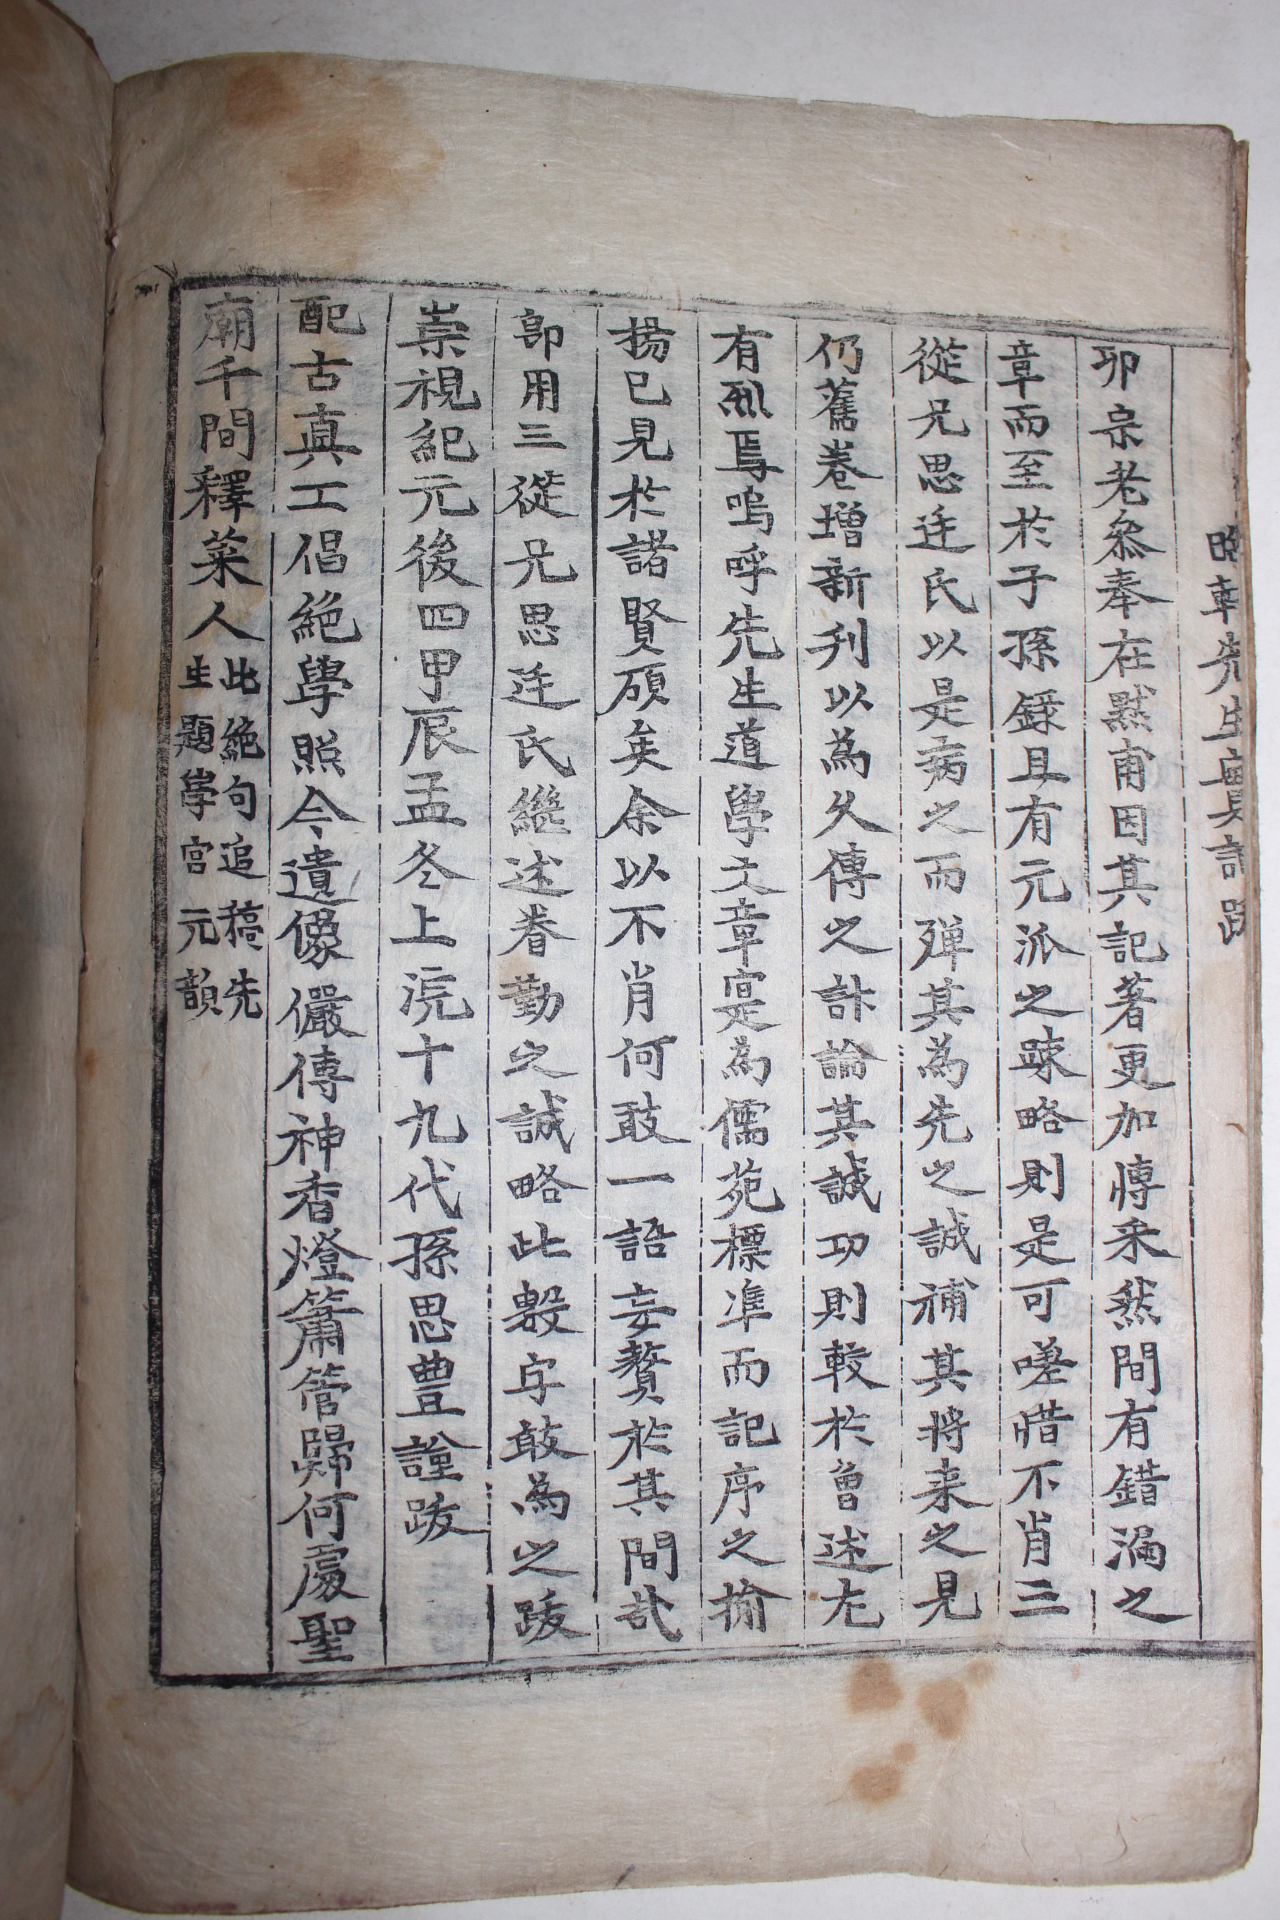 晦軒先生實記跋
卯宗老叅奉在黙甫因其記著更加博采然間有錯漏之
章而至於子孫錄且有元派之踈略則是可嗟惜不肖三
從兄思迋氏以是病之而殫其為先之誠補其將来之見
仍舊卷增新刋以為久傳之計論其誠功則較於曾述尤
有烈焉嗚呼先生道學文章寔為儒苑標準而記序之揄
揚已見於諸賢碩矣余以不肖何敢一語妄贅於其間哉
卽用三從兄思迋氏繼述眷勤之誠略此數字敢為之跋
崇視紀元後四甲辰孟冬上浣十九代孫思豊謹跋
配古真工倡絶學照今遺像儼傳神香燈簫管歸何處聖
廟千間釋菜人
此絶句追稿先
生題學宮元韻